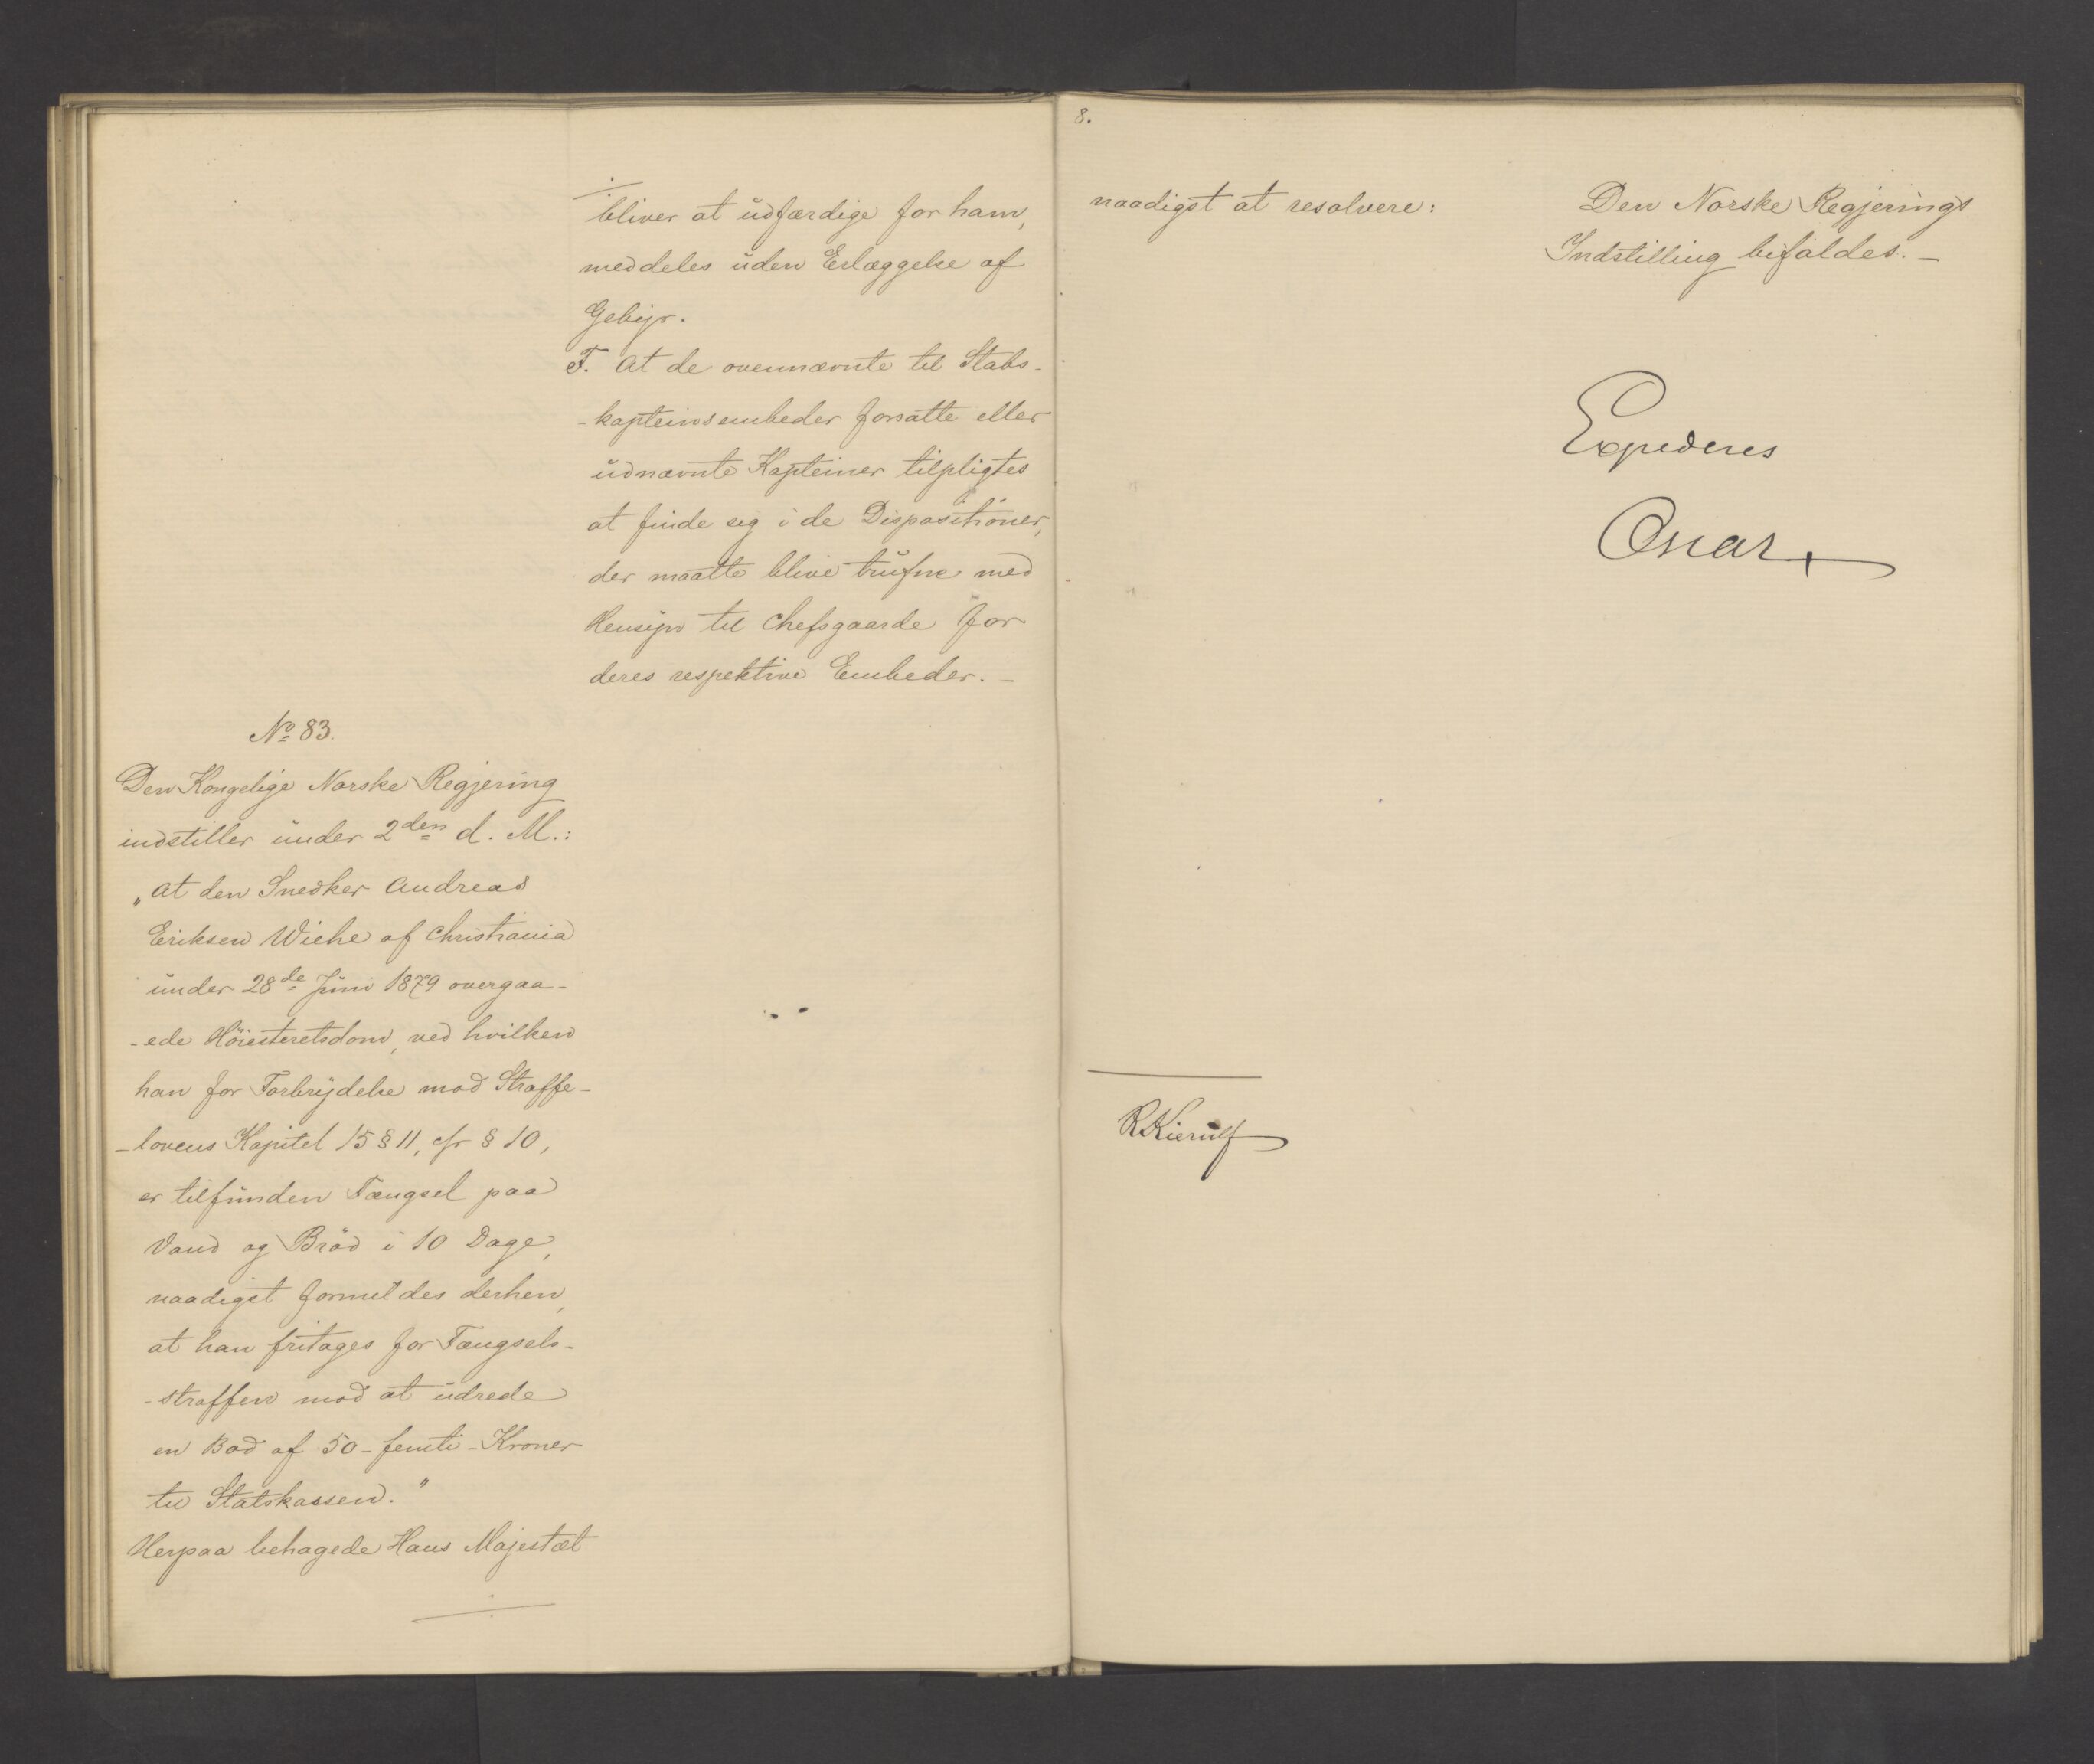 bliver at udfærdige for ham,
meddeles uden Erlæggelse af
Gebyr.
F. At de ovennævnte til Stabs-
-kapteinsembeder forsatte eller
udnævnte Kapteiner tilpligtes
at finde sig i de Dispositioner,
der maatte blive trufne med
Hensyn til Chefsgaarde for
deres respektive Embeder. -
No 83.
Den Kongelige Norske Regjering
indstiller under 2den d. M.:
„At den Snedker Andreas
Eriksen Wiehe af Christiania
under 28de Juni 1879 overgaa-
-ede Höiesteretsdom, ved hvilken
han for Forbrydelse mod Straffe-
-lovens Kapitel 15 § 11, cfr § 10,
er tilfunden Fængsel paa
Vand og Bröd i 10 Dage,
naadigst formildes derhen,
at han fritages for Fængsels-
-straffen mod at udrede
en Bod af 50 - femti - Kroner
til Statskassen."
Herpaa behagede Hans Majestæt
8.
naadigst at resolvere:
Den Norske Regjerings
Indstilling bifaldes. -
Expederes
Oscar
RKierulf